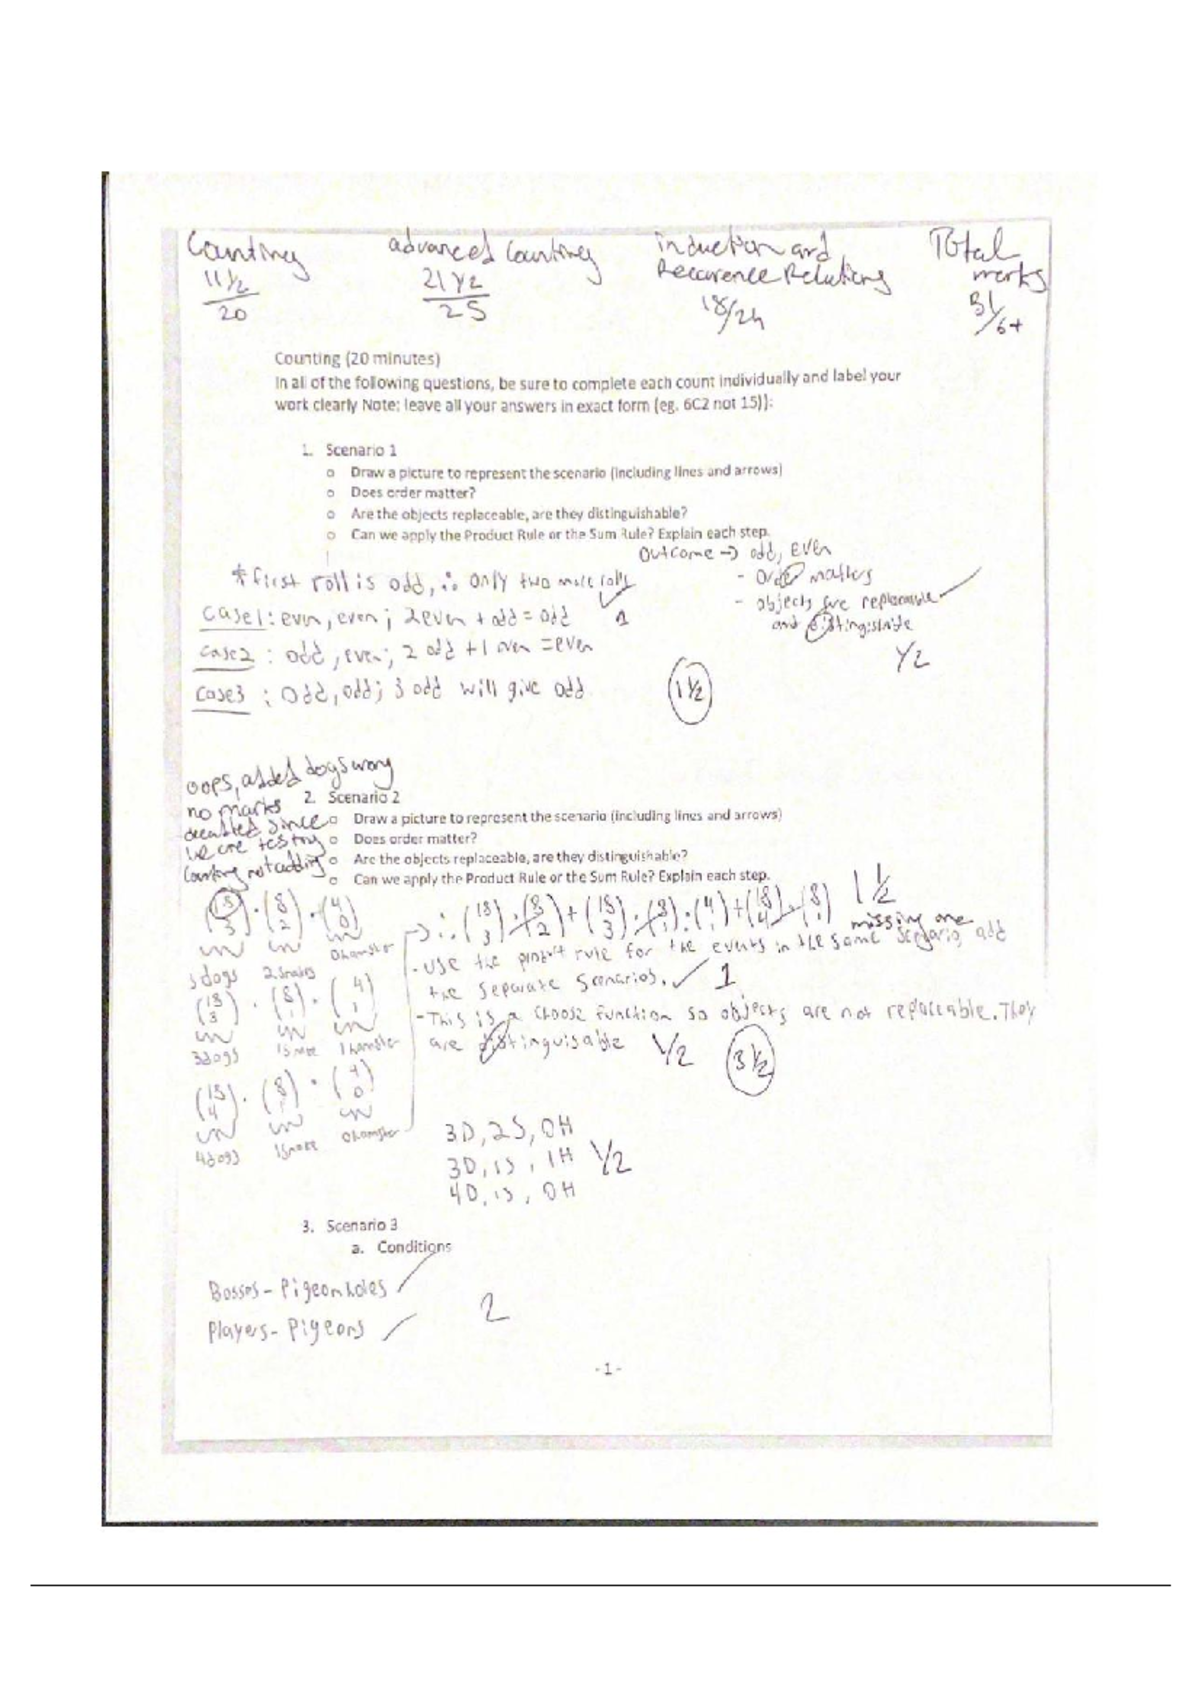 Counting advanced Counting induction and Total
11 1/2 21 1/2 Recurence Relations marks
20 25 18/24 51/64
Counting (20 minutes)
In all of the following questions, be sure to complete each count individually and label your
work clearly Note: leave all your answers in exact form (eg. 6C2 not 15)):
1. Scenario 1
o Draw a picture to represent the scenario (including lines and arrows)
o Does order matter?
o Are the objects replaceable, are they distinguishable?
o Can we apply the Product Rule or the Sum Rule? Explain each step.
Outcome → odd, even
* first roll is odd, ∴ only two more rolls
- Order matters
- objects are replaceable
and distinguishable
1/2
case1: even, even; 2 even + odd = odd 1
case2: odd, even; 2 odd + 1 even = even
case3: odd, odd; 3 odd will give odd 1 1/2
oops, added dogs wrong
no marks
since
we are testing
counting not adding
2. Scenario 2
o Draw a picture to represent the scenario (including lines and arrows)
o Does order matter?
o Are the objects replaceable, are they distinguishable?
o Can we apply the Product Rule or the Sum Rule? Explain each step.
(18 3)·(8 2)·(4 0)
3 dogs 2 snakes 0 hamster
(18 3)·(8 1)·(4 1)
3 dogs 1 snake 1 hamster
(18 4)·(8 1)·(4 0)
4 dogs 1 snake 0 hamster
→ ∴ (18 3)·(8 2)+(18 3)·(8 1)·(4 1)+(18 4)·(8 1) 1 1/2
missing one
- use the product rule for the events in the same scenario, add
the separate scenarios. 1
- This is a choose function so objects are not replaceable. They
are distinguisable 1/2 3 1/2
3D, 2S, 0H
3D, 1S, 1H 1/2
4D, 1S, 0H
3. Scenario 3
a. Conditions
Bosses - Pigeonholes
Players - Pigeons 2
- 1 -